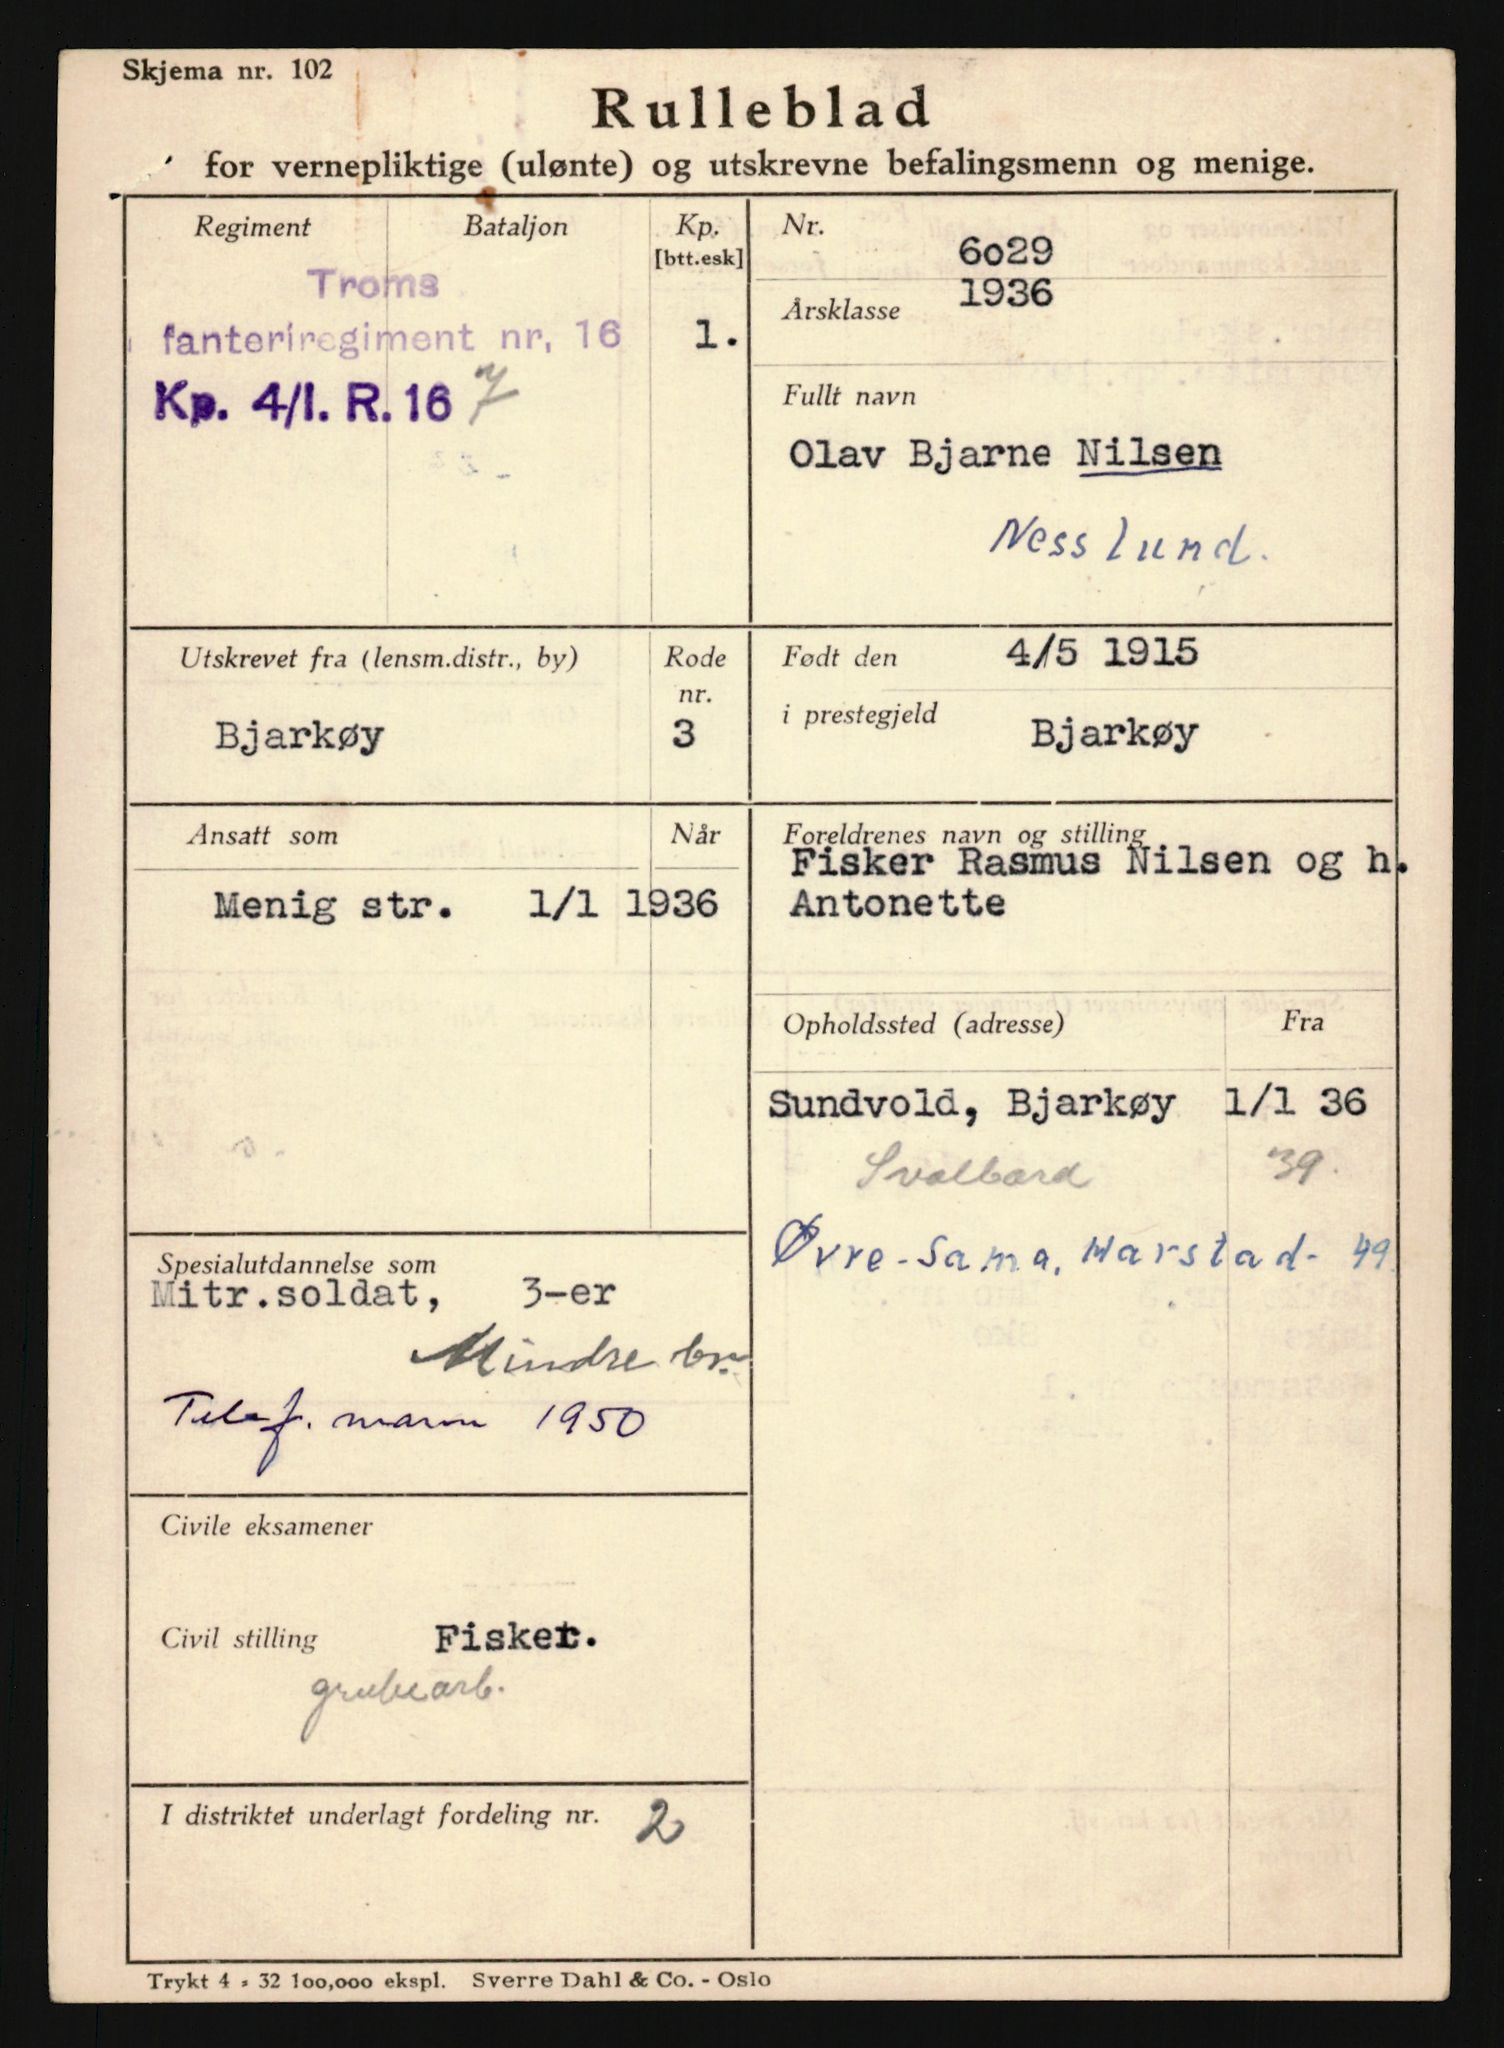 Skjema nr. 102
Rulleblad
for vernepliktige (ulønte) og utskrevne befalingsmenn og menige.
Regiment Bataljon Kp.
[btt.esk]
Troms
fanteriregiment nr. 16 1.
Kp. 4/I. R. 16 7
Nr. 6029
Årsklasse 1936
Fullt navn
Olav Bjarne Nilsen
Nesslund.
Utskrevet fra (lensm.distr., by) Rode
nr.
Bjarkøy 3
Født den 4/5 1915
i prestegjeld Bjarkøy
Ansatt som Når
Menig str. 1/1 1936
Foreldrenes navn og stilling
Fisker Rasmus Nilsen og h.
Antonette
Opholdssted (adresse) Fra
Sundvold, Bjarkøy 1/1 36
Svalbard 39.
Øvre-Sama, Harstad- 49
Spesialutdannelse som
Mitr.soldat, 3-er
Mindre br.
Telef. mann 1950
Civile eksamener
Civil stilling Fisker.
grubearb.
I distriktet underlagt fordeling nr. 2
Trykt 4 - 32 100,000 ekspl. Sverre Dahl & Co. - Oslo